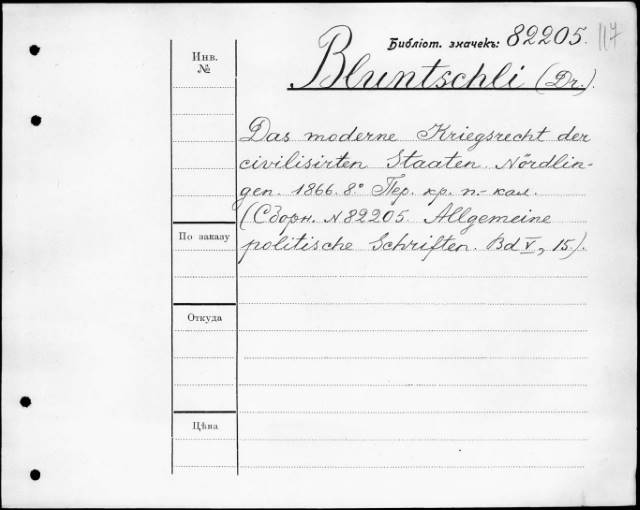 Библіот. значекъ: 82205. 117
Инв.
№
Bluntschli (Dr.).
Das moderne Kriegsrecht der
civilisirten Staaten. Nördlin-
gen. 1866. 8° Пер. кр. п.-кал.
(Сборн. N 82205. Allgemeine
По заказу
politische Schriften. Bd V, 15.).
Откуда
Цѣна